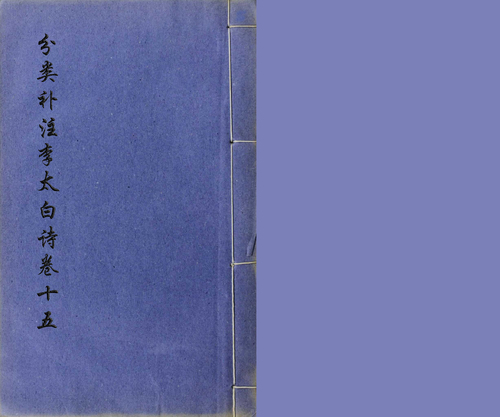 分类补注李太白诗卷十五